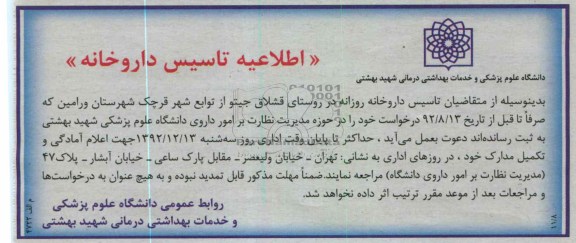 « اطلاعیه تاسیس داروخانه »
دانشگاه علوم پزشکی و خدمات بهداشتی درمانی شهید بهشتی
بدینوسیله از متقاضیان تاسیس داروخانه روزانه در روستای قشلاق جیتو از توابع شهر قرچک شهرستان ورامین که
صرفاً تا قبل از تاریخ ۹۲/۸/۱۳ درخواست خود را در حوزه مدیریت نظارت بر امور داروی دانشگاه علوم پزشکی شهید بهشتی
به ثبت رسانده‌اند دعوت بعمل می‌آید ، حداکثر تا پایان وقت اداری روز سه‌شنبه ۱۳۹۲/۱۲/۱۳جهت اعلام آمادگی و
تکمیل مدارک خود ، در روزهای اداری به نشانی: تهران ـ خیابان ولیعصر ـ مقابل پارک ساعی ـ خیابان آبشار ـ پلاک۴۷
(مدیریت نظارت بر امور داروی دانشگاه) مراجعه نمایند.ضمناً مهلت مذکور قابل تمدید نبوده و به هیچ عنوان به درخواست‌ها
و مراجعات بعد از موعد مقرر ترتیب اثر داده نخواهد شد.
روابط عمومی دانشگاه علوم پزشکی
و خدمات بهداشتی درمانی شهید بهشتی
۱۱/۸